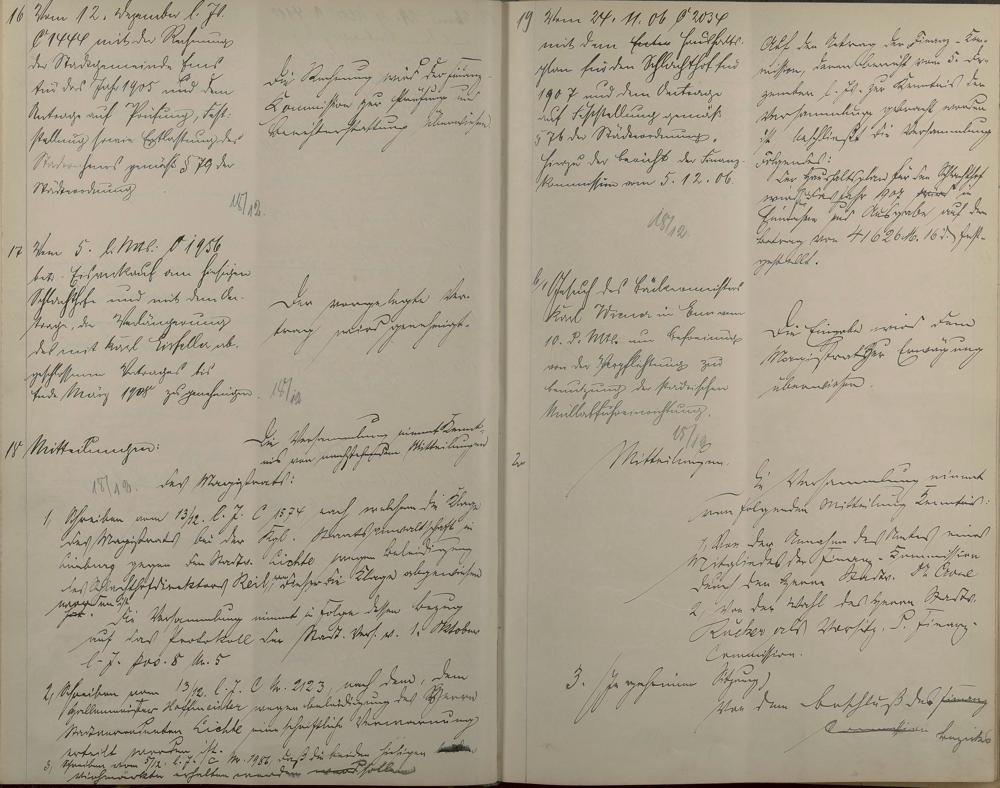 16 Vom 12. Dezember l. Js.
C 1444 mit der Rechnung
der Stadtgemeinde Ems
für das Jahr 1905 und dem
Antrage auf Prüfung, Fest-
stellung sowie Entlastung des
Stadtrechners gemäß § 79 der
Städteordnung
Die Rechnung wird der Finanz-
Commission zur Prüfung und
Berichterstattung überwiesen
18/12.
17 Vom 5. l. Mts. C 1956
betr. Eisverkauf am hiesigen
Schlachthofe und mit dem An-
trage, die Verlängerung
des mit Karl ab-
geschlossenen Vertrages bis
Ende März 1908 zu genehmigen.
Der vorgelegte Ver-
trag wird genehmigt.
18/12
18 Mitteilungen:
Die Versammlung nimmt Kennt-
nis von nachstehenden Mitteilungen
18/12. des Magistrats:
1, Schreiben vom 13/12. l. J. C 1574 nach welchem die Klage
des Magistrats bei der Kgl. Staatsanwaltschaft in
Limburg gegen den Stadtv. Lichte wegen Beleidigung
des Schlachthofdirektors Keil, die Klage abgewiesen
worden ist.
Die Versammlung nimmt in Folge dessen Bezug
auf das Protokoll der Stadtv. Vers. v. 1. Oktober
l. J. Pos. 8 Nr. 5
2, Schreiben vom 13/12. l. J. C Nr. 2123 nach dem, dem
Hallenmeister Hoffmeister wegen Beleidigung des Herrn
Stadtverordneten Lichte eine schriftliche Verwarnung
erteilt worden ist.
3, Schreiben vom 5/12. l. J. C Nr. 1956, daß die beiden hiesigen
erhalten werden sollen
19 Vom 24. 11. 06 C 2034
mit dem Haushalts-
plan für den Schlachthof für
1907 und dem Antrage
auf Feststellung gemäß
§ 76 der Städteordnung.
Hierzu der Bericht der Finanz-
kommission vom 5. 12. 06.
Auf den Antrag der Finanz-Com-
mission, deren Bericht vom 5. De-
zember l. Js. zur Kenntnis der
Versammlung gebracht worden
ist beschließt die Versammlung
Folgendes:
Der Haushaltsplan für den Schlachthof
wird für das Jahr 1907 in
Einnahme und Ausgabe auf den
Betrag von 41626 M. 16 d. fest-
gestellt.
18/12.
b, Gesuch des Bäckermeisters
Karl in Ems vom
10. d. Mts. um Befreiung
von der Verpflichtung zur
Benutzung der städtischen
Müllabfuhreinrichtung.
Die Eingabe wird dem
Magistrat zur Erwägung
überwiesen.
18/12
2. Mitteilungen.
Die Versammlung nimmt
von folgenden Mitteilung Kenntnis:
1, Von der Annahme des Amtes eines
Mitgliedes der Finanz-Commission
durch den Herrn Stadtv. Dr.
2, Von der Wahl des Herrn Stadtv.
Rücker als Vorsitz. d. Finanz-
Commission.
3. (In geheimer Sitzung)
Von dem Beschluß des Finanz
Commission